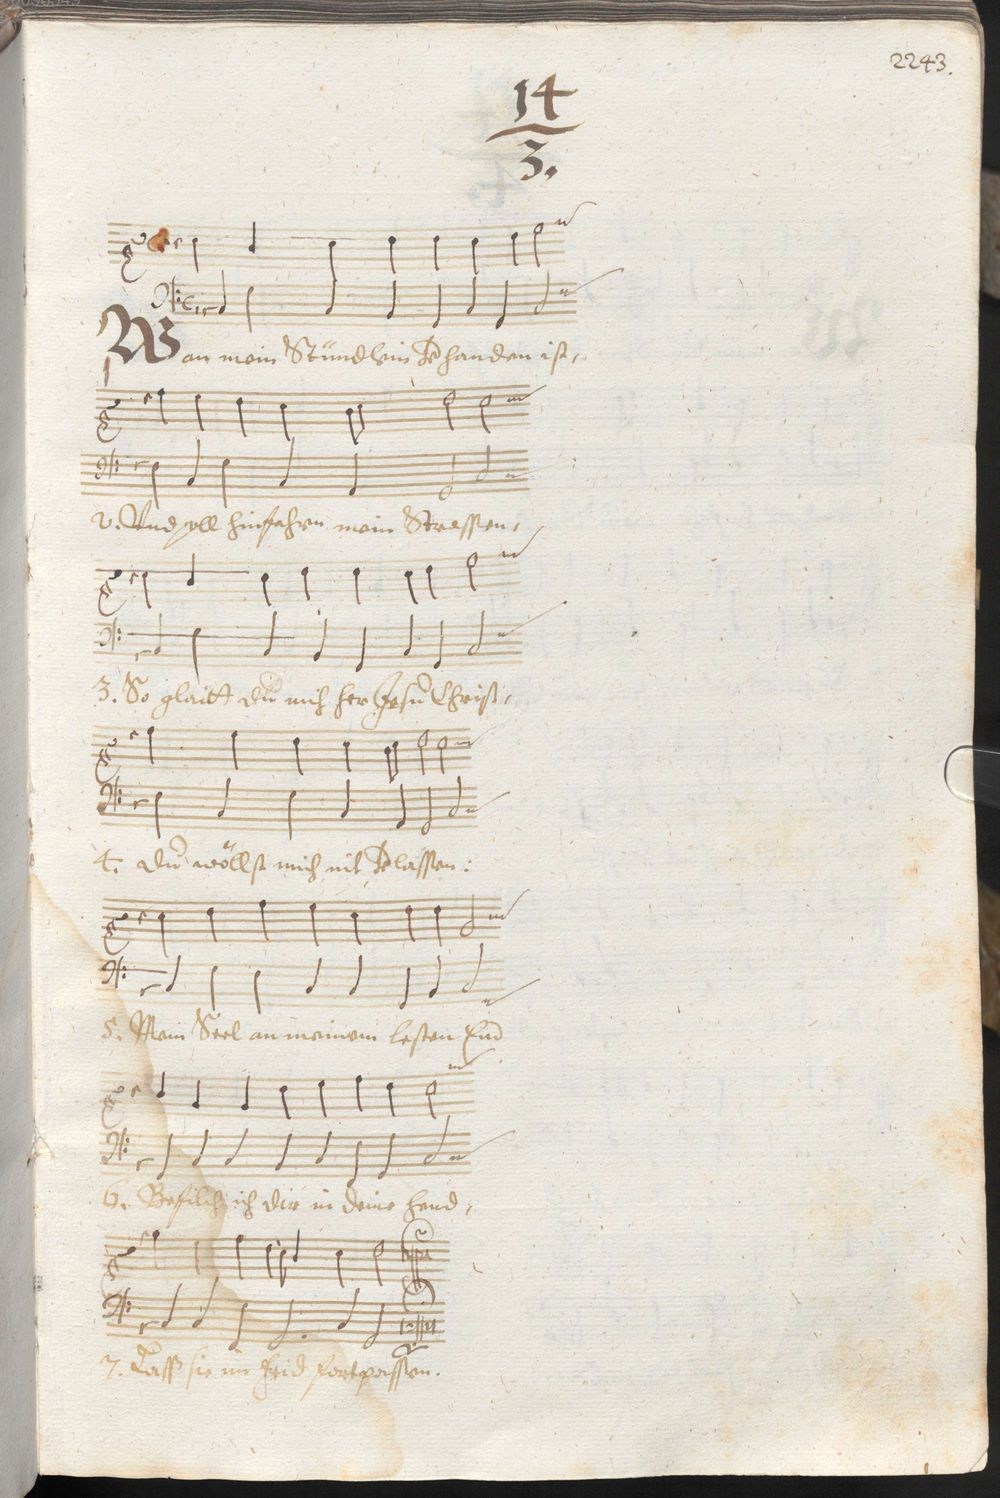 2243.
14
3.
Wan mein Stündlein Vorhanden ist,
2. Und soll hinfahren mein Strassen,
3. So glaitt du mich her Jesu Christ,
4. du wöllst mich nit Verlassen:
5. Mein Seel an meinem lesten End
6. Befilch ich dir in deine hend,
7. Lass sie im frid